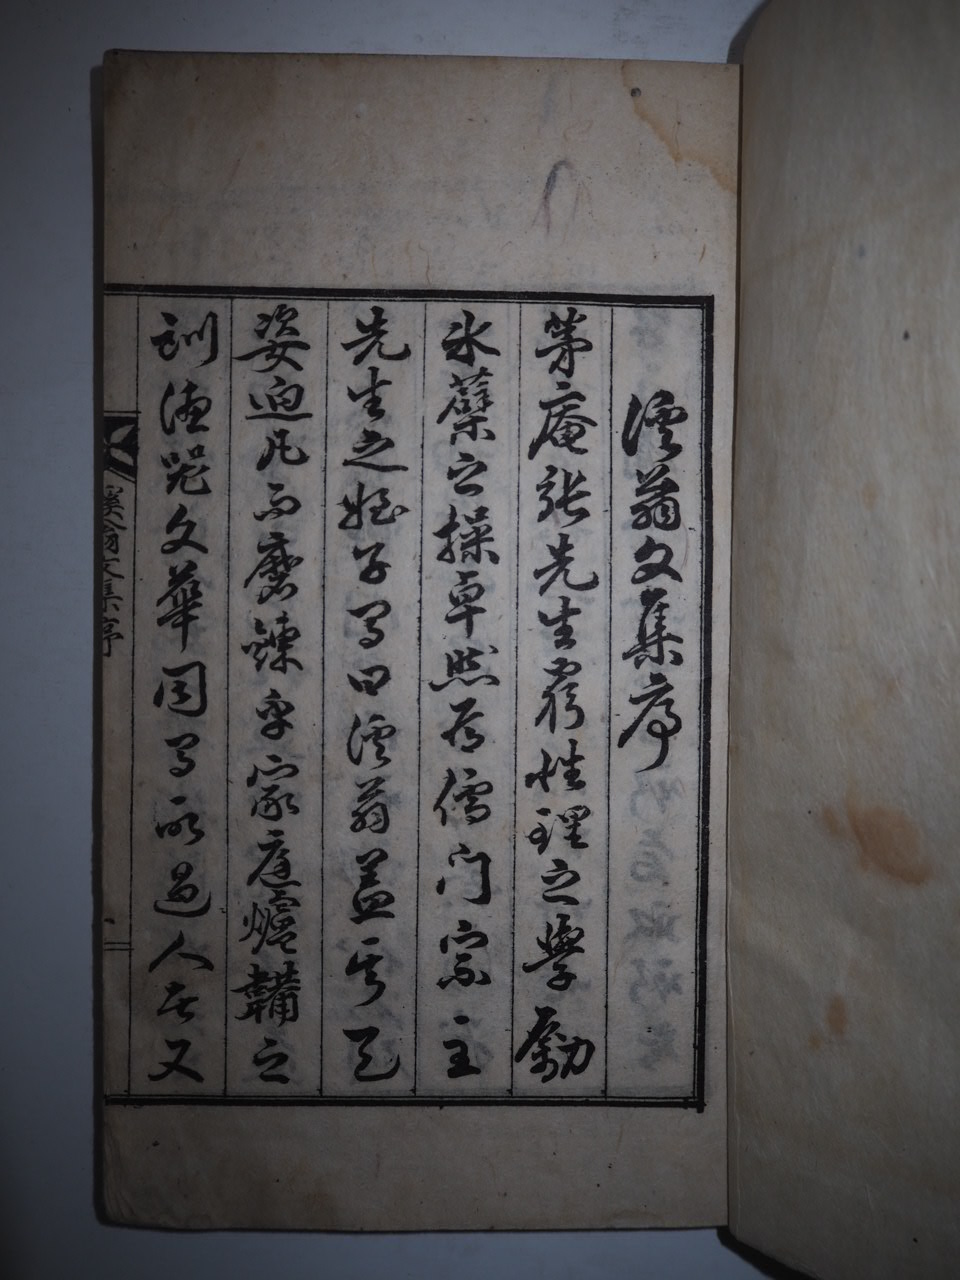 溪翁文集序
茅庵張先生窮性理之學勵
氷蘗之操卓然為儒門宗主
先生之姪子有曰溪翁蓋其天
姿迥凡而磨鍊乎家庭爐韛之
訓德器文華固有所過人者又
溪翁文集序